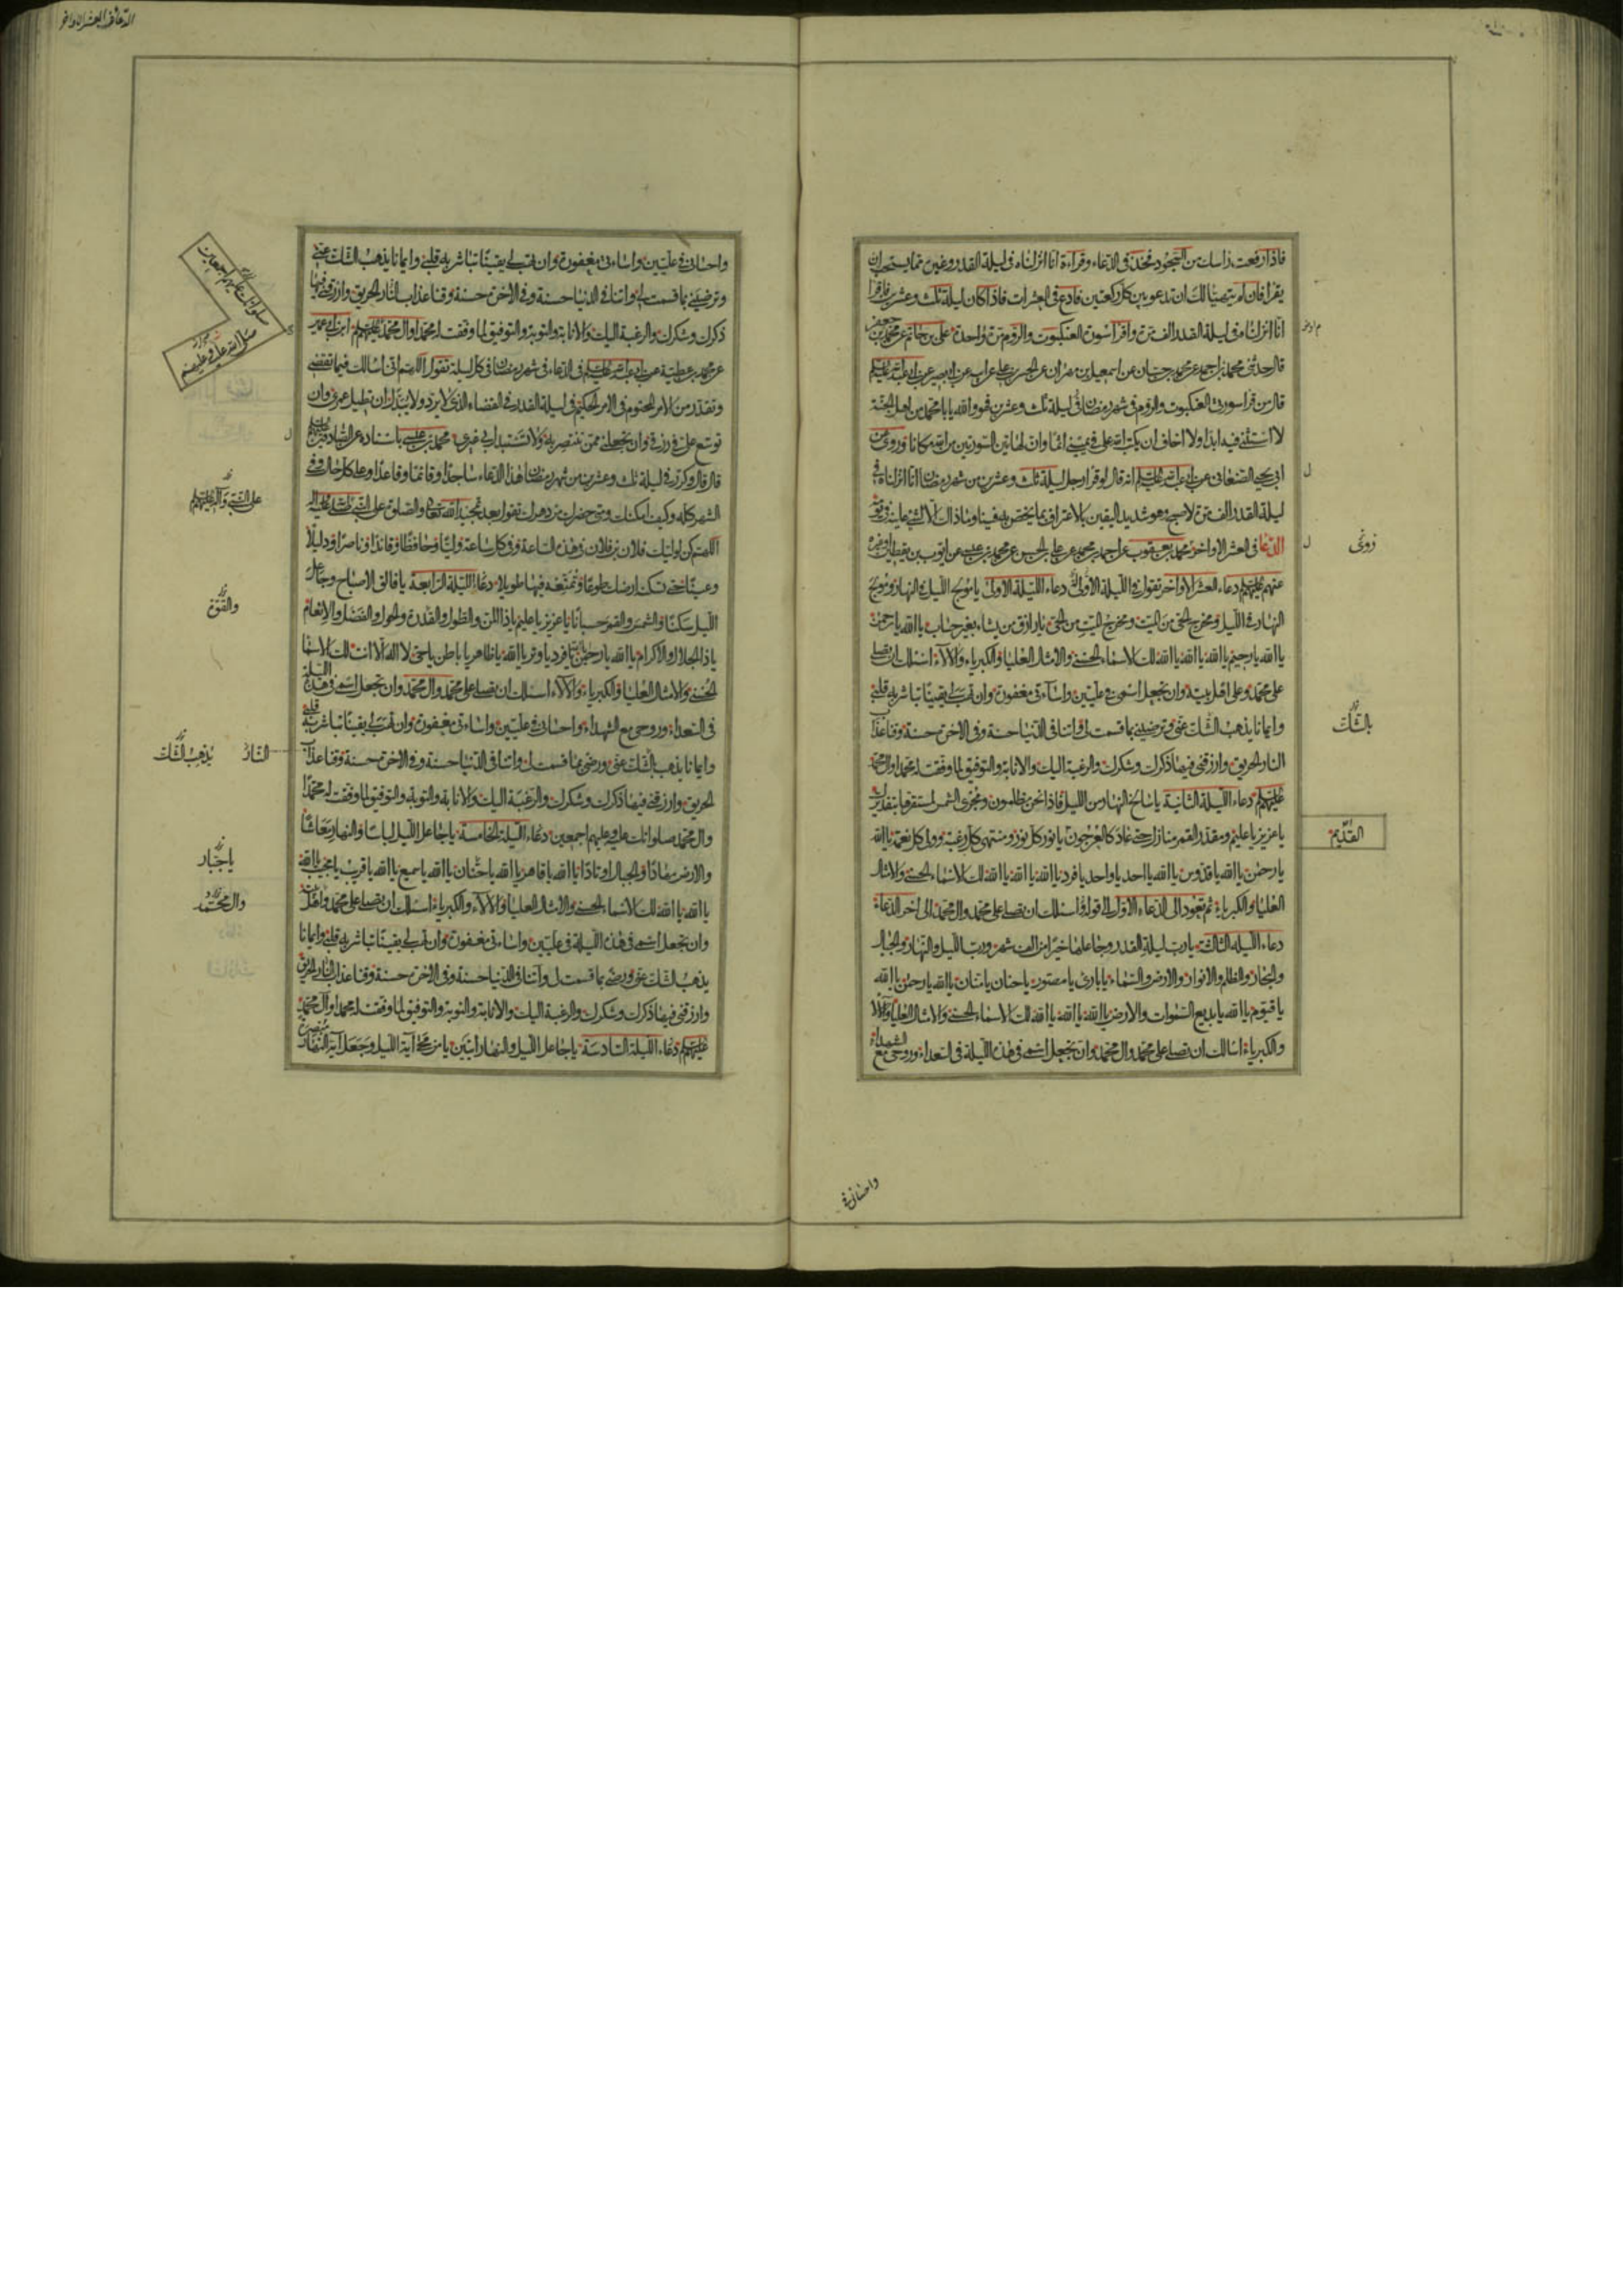 فاذا رفعت راسك من السجود فخذ في الدعاء وقراءة انا انزلناه في ليلة القدر وغير مما يستحب ان
يقرا فان لم يتهيا لك ان تدعو بين كل ركعتين فادع في العشرات فاذا كان ليلة ثلث وعشرين فاقرا
انا انزلناه في ليلة القدر الف مرة واقرا سورة العنكبوت والروم مرة واحدة علي بن حاتم عن محمد بن جعفر
قال حدثني محمد بن احمد عن محمد بن حسان عن اسمعيل بن مهران عن الحسن بن علي عن ابيه عن ابي بصير عن ابي عبد الله عليه السلم
قال من قرا سورتي العنكبوت والروم في شهر رمضان في ليلة ثلث وعشرين فهو والله يا با محمد من اهل الجنة
لا استثني فيه ابدا ولا اخاف ان يكتب الله علي في يميني اثما وان لهاتين السورتين من الله مكانا وروي عن
ابي يحيى الصنعاني عن ابي عبد الله عليه السلم انه قال لو قرا رجل ليلة ثلث وعشرين من شهر رمضان انا انزلناه في
ليلة القدر الف مرة لاصبح وهو شديد اليقين بالاعتراف بما يختص به فينا وما ذاك الا لشيء عاينه في نومه
الدعا في العشر الاواخر محمد بن يعقوب عن احمد بن محمد عن علي بن الحسن عن محمد بن عيسى عن ايوب بن يقطين او غيره
عنهم عليهم السلم دعاء العشر الاواخر تقول في الليلة الاولى دعاء الليلة الاولى يا مولج الليل في النهار ومولج
النهار في الليل ومخرج الحي من الميت ومخرج الميت من الحي يا رازق من يشاء بغير حساب يا الله يا رحمن
يا الله يا رحيم يا الله يا الله يا الله لك الاسماء الحسنى والامثال العليا والكبرياء والآلاء اسئلك ان تصلي
على محمد وعلى اهل بيته وان تجعل اسمي في عليين واساءتي مغفورة وان تهب لي يقينا تباشر به قلبي
وايمانا يذهب الشك عني وترضيني بما قسمت لي واتنا في الدنيا حسنة وفي الاخرة حسنة وقنا عذاب
النار الحريق وارزقني فيها ذكرك وشكرك والرغبة اليك والانابة والتوفيق لما وفقت له محمدا وال محمد
عليهم السلم دعاء الليلة الثانية يا سالخ النهار من الليل فاذا نحن مظلمون ومجرى الشمس لمستقرها بتقديرك
يا عزيز يا عليم ومقدر القمر منازل حتى عاد كالعرجون يا نور كل نور ومنتهى كل رغبة وولي كل نعمة يا الله
يا رحمن يا الله يا قدوس يا الله يا احد يا واحد يا فرد يا الله يا الله يا الله لك الاسماء الحسنى والامثال
العليا والكبرياء ثم تعود الى الدعاء الاول الى قوله اسئلك ان تصلي على محمد وال محمد الى اخر الدعاء
دعاء الليلة الثالثة يا رب ليلة القدر وجاعلها خيرا من الف شهر ورب الليل والنهار والجبال
والبحار والظلم والانوار والارض والسماء يا بارئ يا مصور يا حنان يا منان يا الله يا رحمن يا الله
يا قيوم يا الله يا بديع السموات والارض يا الله يا الله يا الله لك الاسماء الحسنى والامثال العليا والآلاء
والكبرياء اسالك ان تصلي على محمد وال محمد وان تجعل اسمي في هذه الليلة في السعداء وروحي مع الشهداء
روى
بالشك
القديم
واحساني في
الدعاء في العشر الاواخر
واحساني في عليين واساءتي مغفورة وان تهب لي يقينا تباشر به قلبي وايمانا يذهب الشك عني
وترضيني بما قسمت لي واتنا في الدنيا حسنة وفي الاخرة حسنة وقنا عذاب النار الحريق وارزقني فيها
ذكرك وشكرك والرغبة اليك والانابة والتوبة والتوفيق لما وفقت له محمدا وال محمد عليهم السلم ابن ابي عمير
عن محمد بن عطية عن ابي عبد الله عليه السلم في الدعاء في شهر رمضان في كل ليلة تقول اللهم اني اسالك فيما تقضي
وتقدر من الامر المحتوم في الامر الحكيم في ليلة القدر في القضاء الذي لا يرد ولا يبدل ان تطيل عمري وان
توسع علي في رزقي وان تجعلني ممن تنتصر به ولا تستبدل بي غيري محمد بن عيسى باسناده عن الصادقين عليهم السلم
قال قال وكرر في ليلة ثلث وعشرين من شهر رمضان هذا الدعاء ساجدا وقائما وقاعدا وعلى كل حال وفي
الشهر كله وكيف امكنك ومتى حضرك من دهرك تقول بعد تمجيد الله تعالى والصلوة على النبي صلى الله عليه واله
اللهم كن لوليك فلان بن فلان في هذه الساعة وفي كل ساعة وليا وحافظا وقائدا وناصرا ودليلا
وعينا حتى تسكنه ارضك طوعا وتمتعه فيها طويلا دعاء الليلة الرابعة يا فالق الاصباح وجاعل
الليل سكنا والشمس والقمر حسبانا يا عزيز يا عليم يا ذا المن والطول والقدرة والحول والفضل والانعام
يا ذا الجلال والاكرام يا الله يا رحمن يا الله يا فرد يا وتر يا الله يا ظاهر يا باطن يا حي لا اله الا انت لك الاسماء
الحسنى والامثال العليا والكبرياء والآلاء اسئلك ان تصلي على محمد وال محمد وان تجعل اسمي في هذه الليلة
في السعداء وروحي مع الشهداء واحساني في عليين واساءتي مغفورة وان تهب لي يقينا تباشر به قلبي
وايمانا يذهب بالشك عني ورضى بما قسمت لي واتنا في الدنيا حسنة وفي الاخرة حسنة وقنا عذاب
الحريق وارزقني فيها ذكرك وشكرك والرغبة اليك والانابة والتوبة والتوفيق لما وفقت له محمدا
وال محمد صلواتك عليه وعليهم اجمعين دعاء الليلة الخامسة يا جاعل الليل لباسا والنهار معاشا
والارض مهادا والجبال اوتادا يا الله يا قاهر يا الله يا حنان يا الله يا سميع يا الله يا قريب يا مجيب يا الله
يا الله يا الله لك الاسماء الحسنى والامثال العليا والآلاء والكبرياء اسئلك ان تصلي على محمد واهل بيته
وان تجعل اسمي في هذه الليلة في عليين واساءتي مغفورة وان تهب لي يقينا تباشر به قلبي وايمانا
يذهب الشك عني ورضى بما قسمت لي وآتنا في الدنيا حسنة وفي الاخرة حسنة وقنا عذاب النار الحريق
وارزقني فيها ذكرك وشكرك والرغبة اليك والانابة والتوبة والتوفيق لما وفقت له محمدا وآل محمد
عليهم السلم دعاء الليلة السادسة يا جاعل الليل والنهار ايتين يا من محا آية الليل وجعل آية النهار مبصرة
صلوات عليهم اجمعين
صلى الله عليه وعليهم
على النبي وآله عليهم السلم
والقوة
النار
يذهب الشك
يا جبار
وال محمد